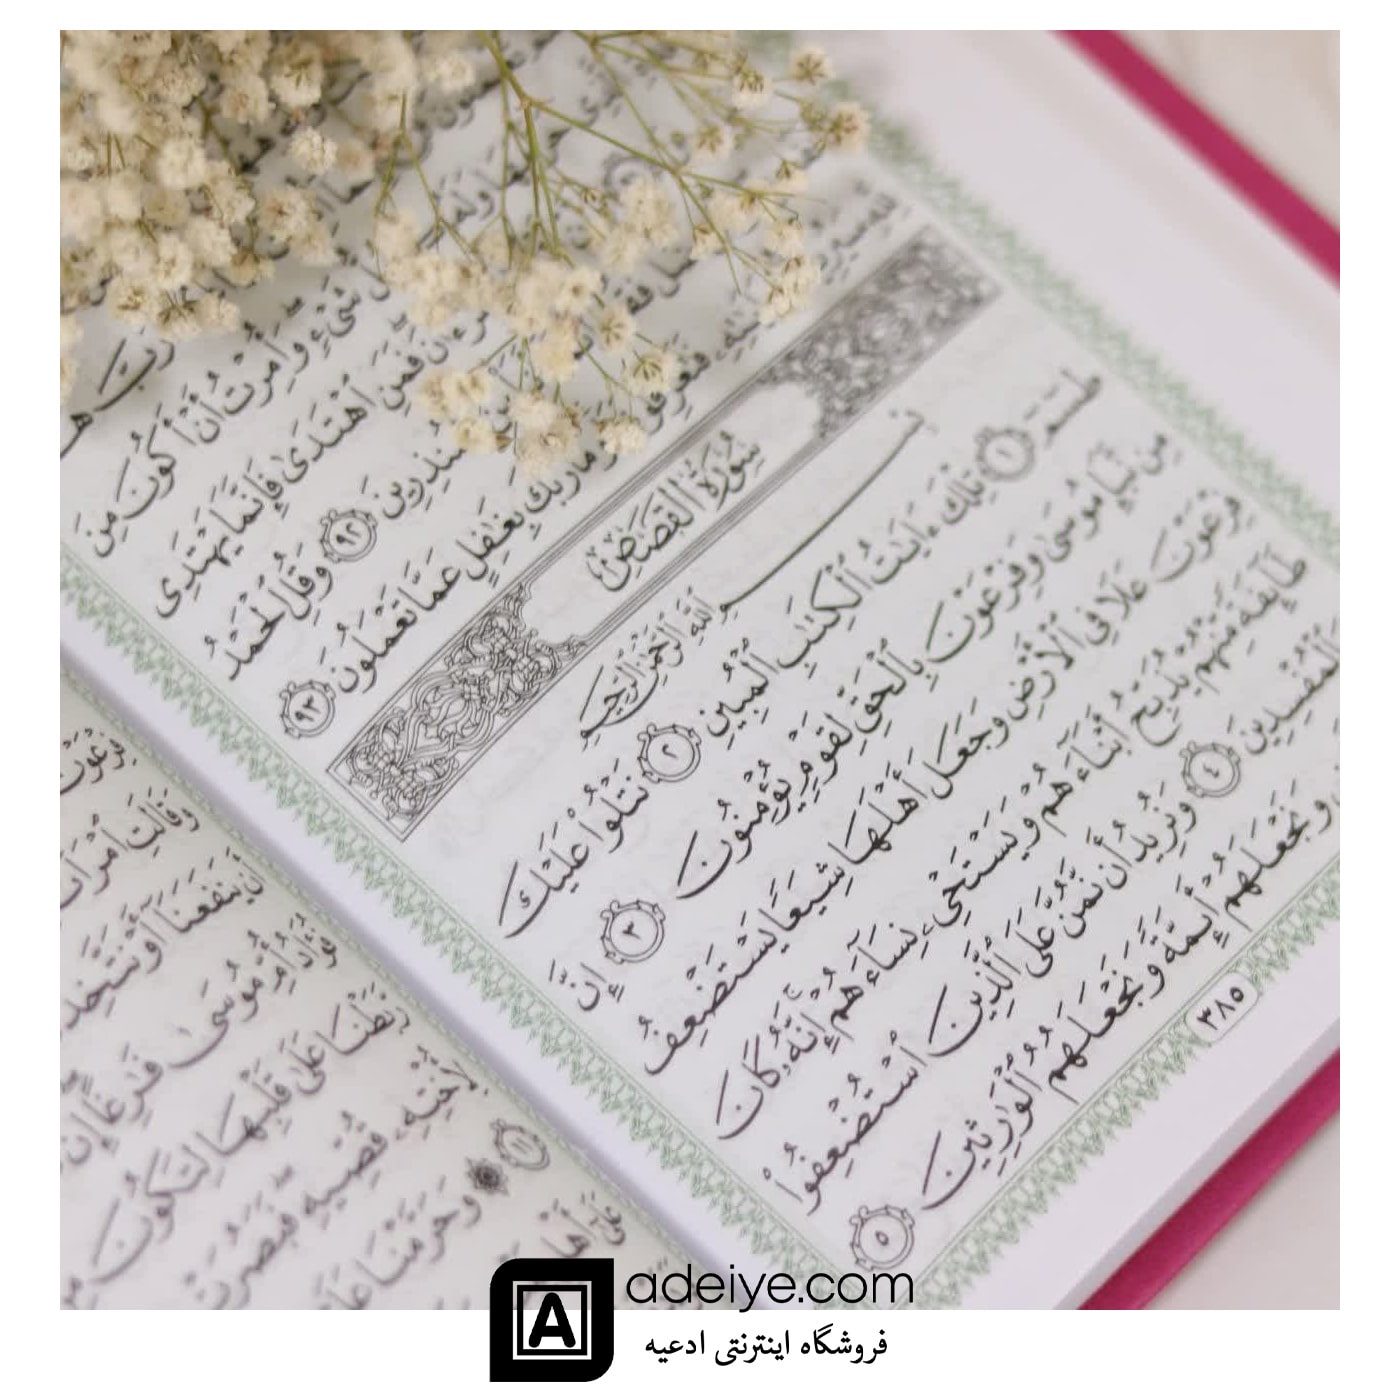 رَبَّ
شَىْءٍ وَأُمِرْتُ أَنْ أَكُونَ مِنَ
فَمَنِ ٱهْتَدَىٰ فَإِنَّمَا يَهْتَدِى
ٱلْمُنذِرِينَ ٩٢ وَقُلِ ٱلْحَمْدُ
وَمَا رَبُّكَ بِغَٰفِلٍ عَمَّا تَعْمَلُونَ ٩٣
سُورَةُ القَصَصِ
بِسْمِ ٱللَّهِ ٱلرَّحْمَٰنِ ٱلرَّحِيمِ
طسٓمٓ ١ تِلْكَ ءَايَٰتُ ٱلْكِتَٰبِ ٱلْمُبِينِ ٢ نَتْلُوا۟ عَلَيْكَ
مِن نَّبَإِ مُوسَىٰ وَفِرْعَوْنَ بِٱلْحَقِّ لِقَوْمٍ يُؤْمِنُونَ ٣ إِنَّ
فِرْعَوْنَ عَلَا فِى ٱلْأَرْضِ وَجَعَلَ أَهْلَهَا شِيَعًا يَسْتَضْعِفُ
طَآئِفَةً مِّنْهُمْ يُذَبِّحُ أَبْنَآءَهُمْ وَيَسْتَحْىِۦ نِسَآءَهُمْ إِنَّهُۥ كَانَ
ٱلْمُفْسِدِينَ ٤ وَنُرِيدُ أَن نَّمُنَّ عَلَى ٱلَّذِينَ ٱسْتُضْعِفُوا۟
وَنَجْعَلَهُمْ أَئِمَّةً وَنَجْعَلَهُمُ ٱلْوَٰرِثِينَ ٥
٣٨٥
فِرْعَوْنَ
وَقَالَتِ ٱمْرَأَتُ
أَن يَنفَعَنَآ أَوْ نَتَّخِذَ
فُؤَادُ أُمِّ مُوسَىٰ فَٰرِغًا إِن
رَّبَطْنَا عَلَىٰ قَلْبِهَا لِتَكُونَ مِنَ
لِأُخْتِهِۦ قُصِّيهِ فَبَصُرَتْ
١١ وَحَرَّمْنَا
adeiye.com
فروشگاه اینترنتی ادعیه
A